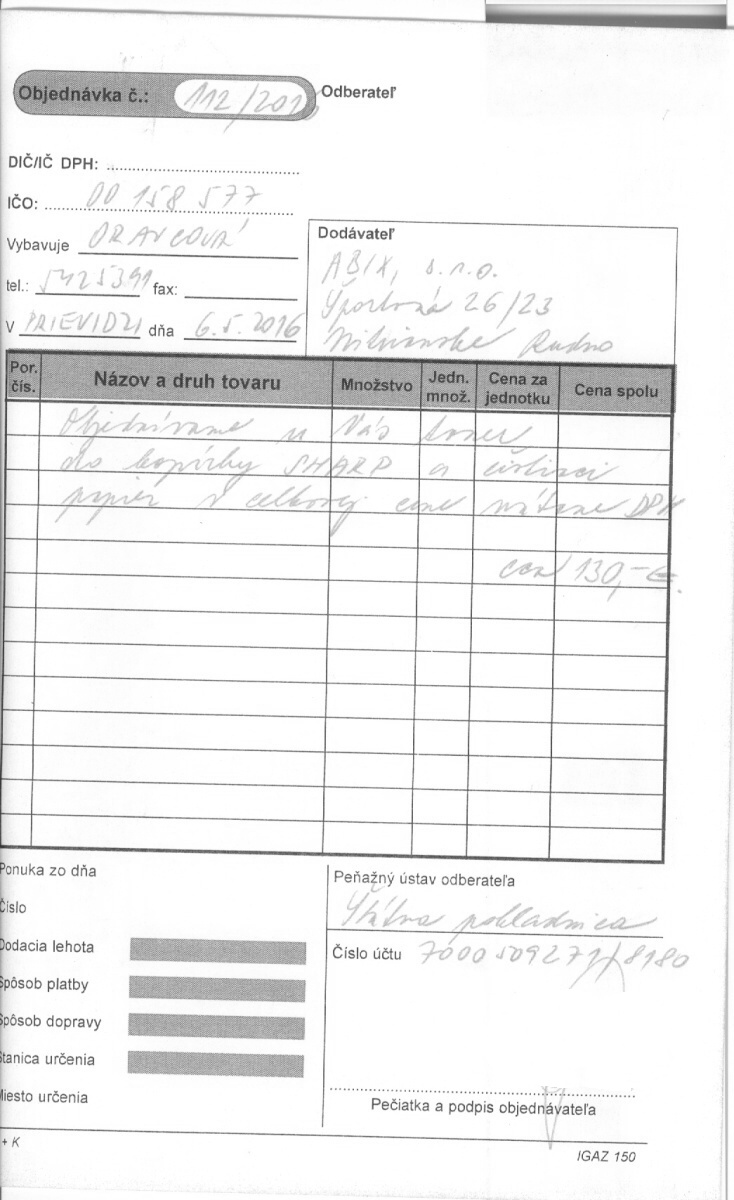 Objednávka č.: 112/2016 Odberateľ
DIČ/IČ DPH:
IČO: 00 158 577
Vybavuje ORAVCOVÁ
tel.: 5425391 fax:
V PRIEVIDZI dňa 6.5.2016
Dodávateľ
ABIX, s.r.o.
Športová 26/23
Nitrianske Rudno
Por. čís. Názov a druh tovaru Množstvo Jedn. množ. Cena za jednotku Cena spolu
Objednávame u Vás toner
do kopírky SHARP a čistiaci
papier v celkovej cene vrátane DPH
cca 130,- €.
Ponuka zo dňa
Číslo
Dodacia lehota
Spôsob platby
Spôsob dopravy
Stanica určenia
Miesto určenia
Peňažný ústav odberateľa
Štátna pokladnica
Číslo účtu 7000509271/8180
Pečiatka a podpis objednávateľa
+ K
IGAZ 150